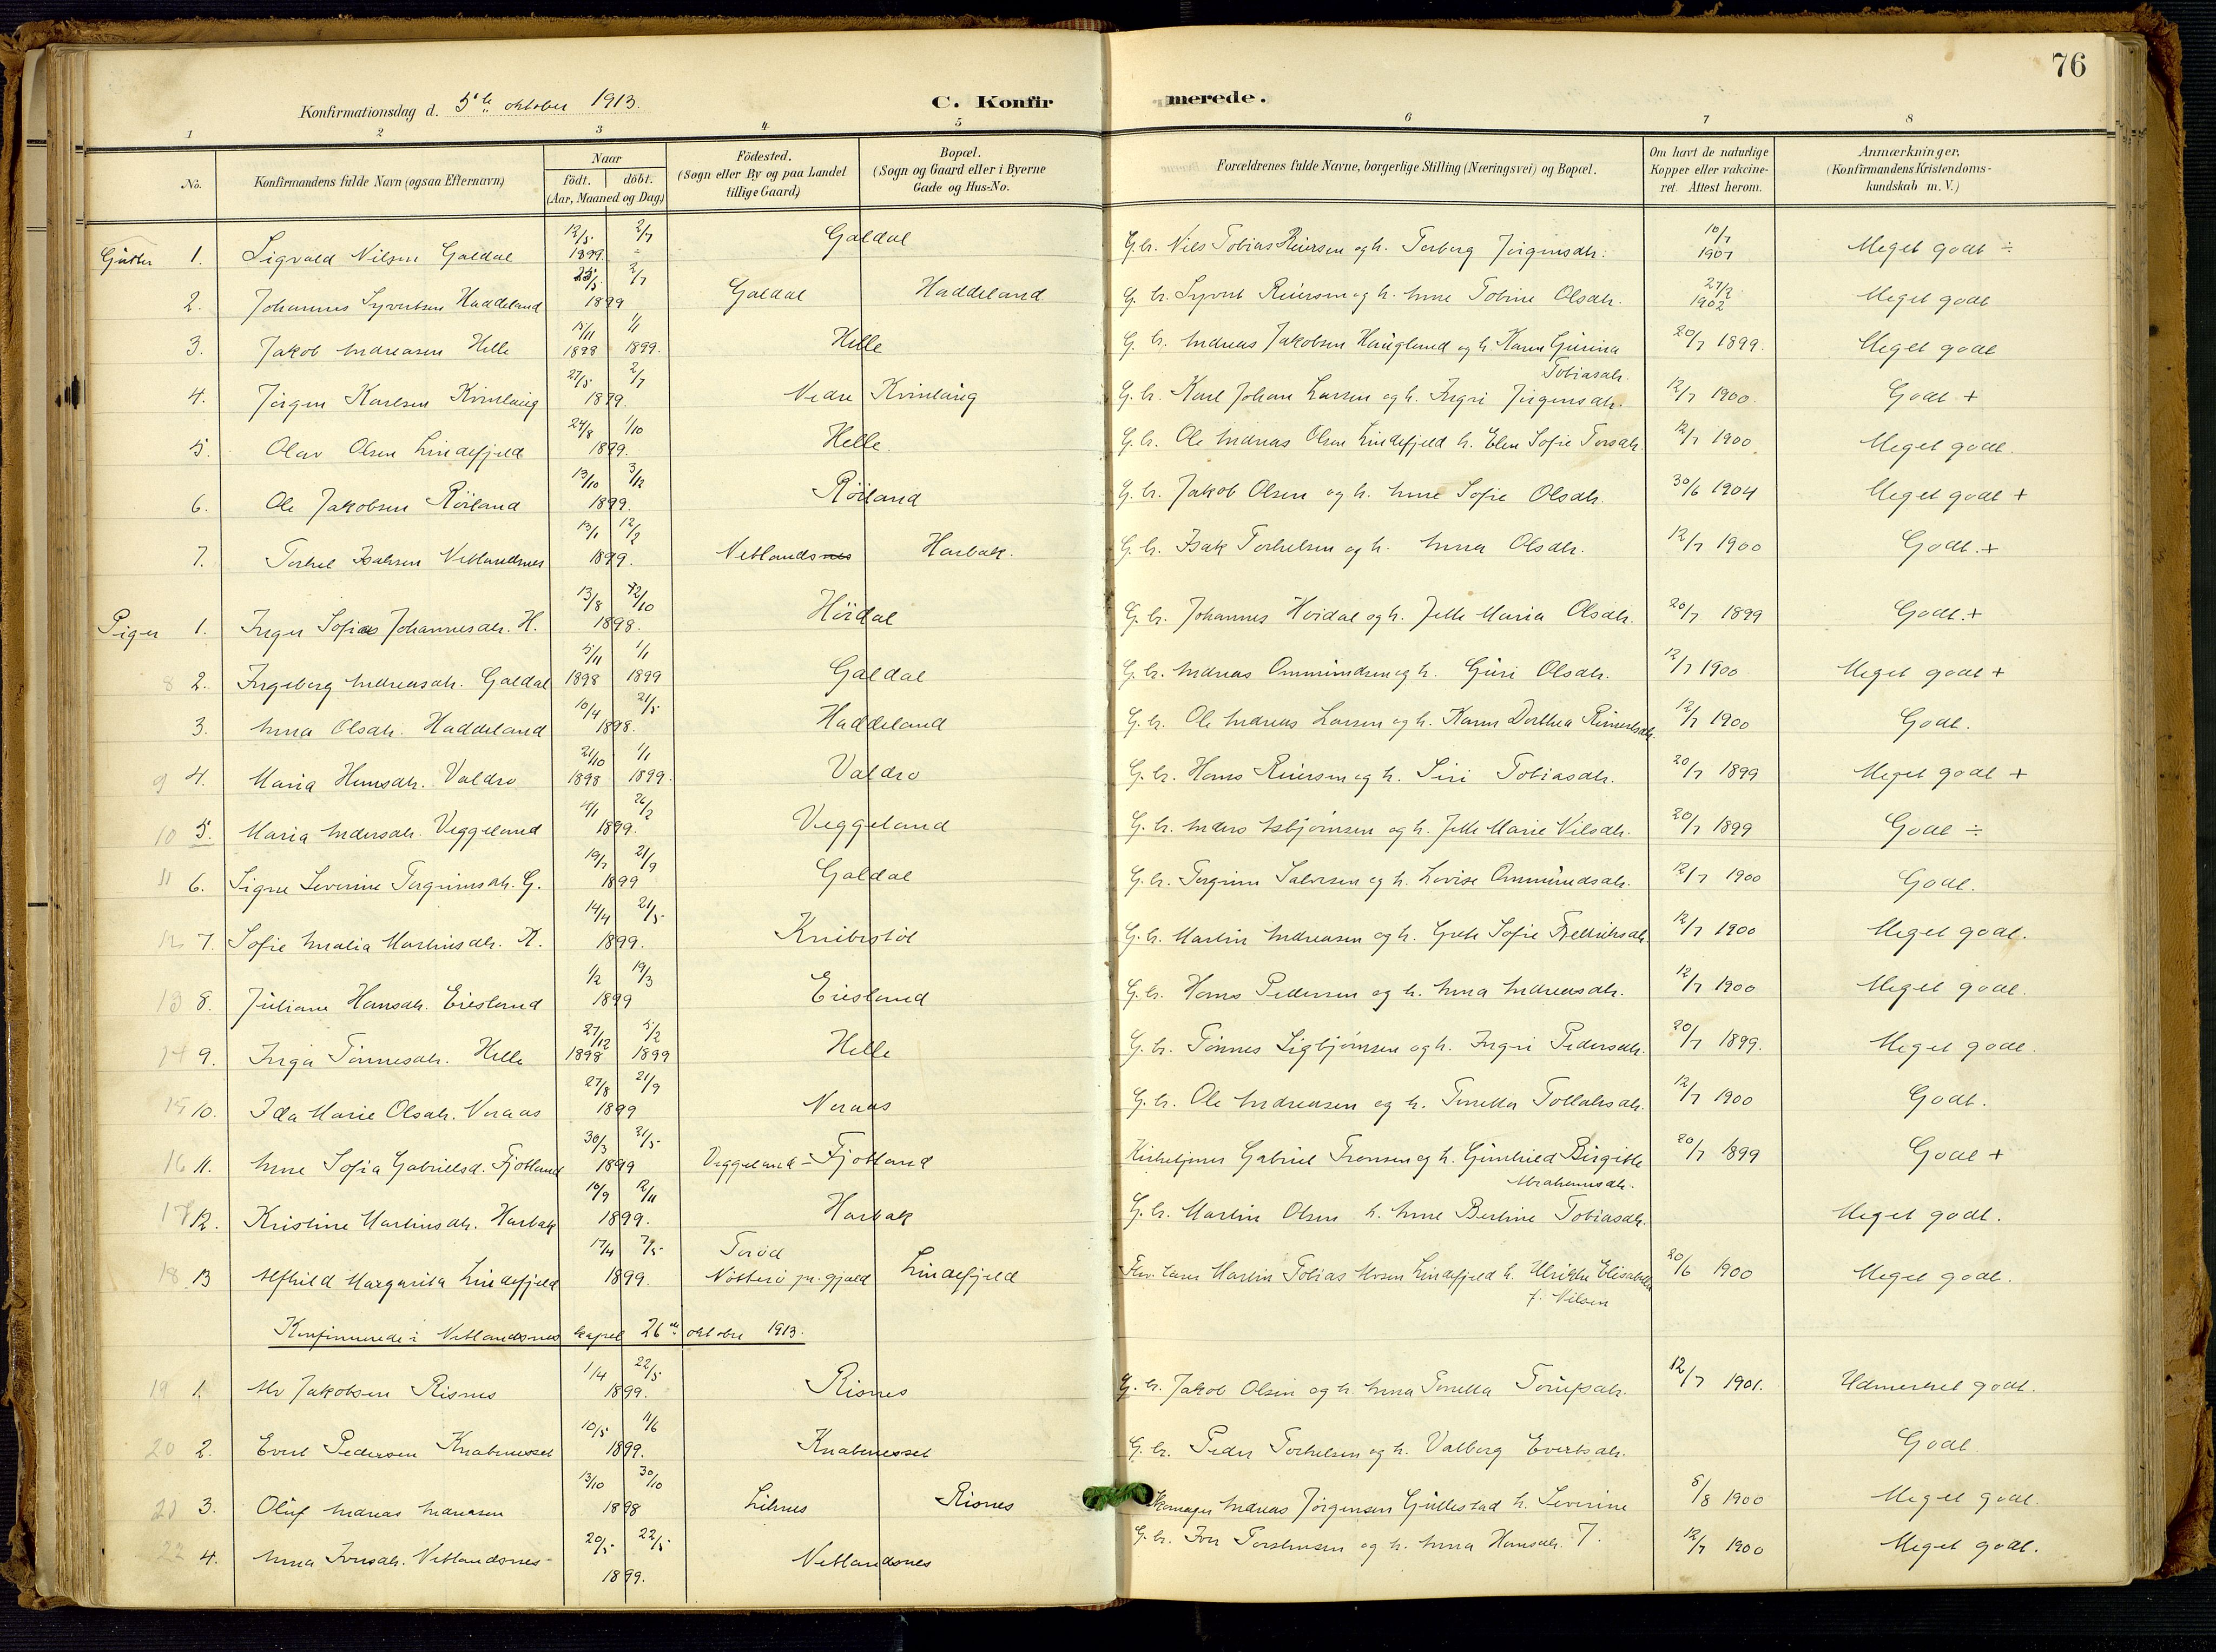 76
Konfirmationsdag d. 5te oktober 1913.
C. Konfirmerede.
1 2 3 4 5 6 7 8
No.
Konfirmandens fulde Navn (ogsaa Efternavn)
Naar
födt. döbt.
(Aar, Maaned og Dag)
Födested.
(Sogn eller By og paa Landet
tillige Gaard)
Bopæl.
(Sogn og Gaard eller i Byerne
Gade og Hus-No.
Forældrenes fulde Navne, borgerlige Stilling (Næringsvei) og Bopæl.
Om havt de naturlige
Kopper eller vakcine-
ret. Attest herom.
Anmærkninger.
(Konfirmandens Kristendoms-
kundskab m. V.)
Gutter 1. Sigvald Nilsen Galdal 12/5 1899. 2/7 Galdal G.br. Nils Tobias Reiersen og h. Torborg Jörgensdtr. 10/7 1907 Meget godt ÷
2. Johannes Syvertsen Haddeland 1899 2/7 Galdal Haddeland G. br. Syvert Reiersen og h. Anne Tobine Olsdtr. 27/2 1902 Meget godt
3. Jakob Andreasen Helle 15/11 1898 1/1 1899. Helle G. br. Andreas Jakobsen Haugland og h. Karen Gurina
Tobiasdtr. 20/7 1899. Meget godt
4. Jörgen Karlsen Kvinlaug 27/5 1899. 2/7 Nedre Kvinlaug G. br. Karl Johan Larsen og h. Ingri Jörgensdtr. 12/7 1900. Godt +
5. Olav Olsen Lindefjeld 24/8 1899. 1/10 Helle G. br. Ole Andreas Olsen Lindefjeld h. Elen Sofie Torsdtr. 12/7 1900 Meget godt.
6. Ole Jakobsen Röiland 13/10 1899. 3/12 Röiland G. br. Jakob Olsen og h. Anne Sofie Olsdtr. 30/6 1904 Meget godt +
7. Torkel Isaksen Netlandsnes 13/1 1899. 12/2 Netlandsnes Harbak. G. br. Isak Torkelsen og h. Anna Olsdtr. 12/7 1900 Godt. +
Piger 1. Inger Sofie Johannesdtr. H. 13/8 1898. Höidal G. br. Johannes Höidal og h. Jette Maria Olsdtr. 20/7 1899 Godt. +
8 2. Ingeborg Andreasdtr. Galdal 5/11 1898 1/1 1899 Galdal G. br. Andreas Ommundsen og h. Guri Olsdtr. 12/7 1900 Meget godt +
3. Anna Olsdtr. Haddeland 10/4 1898. 21/5 Haddeland G. br. Ole Andreas Larsen og h. Karen Dorthea Reinertsdtr. 12/7 1900 Godt.
9 4. Maria Hansdtr. Valdro 21/10 1898 1/1 1899. Valdro G. br. Hans Reiersen og h. Siri Tobiasdtr. 20/7 1899 Meget godt +
10 5. Maria Andersdtr. Veggeland 4/1 1899. 26/2 Veggeland G. br. Anders Asbjörnsen og h. Jette Marie Nilsdtr. 20/7 1899 Godt ÷
11 6. Signe Severine Torgrimsdtr. G. 19/7 1899 21/9 Galdal G. br. Torgrim Salvesen og h. Lovise Ommundsdtr. 12/7 1900 Godt.
12 7. Sofie Amalia Martinsdtr. K. 14/4 1899. 21/5 Knibestöl G. br. Martin Andreasen og h. Grete Sofie Fredriksdtr. 12/7 1900 Meget godt.
13 8. Juliane Hansdtr. Eiesland 1/2 1899 19/3 Eiesland G. br. Hans Pedersen og h. Anna Andreasdtr. 12/7 1900 Meget godt.
14 9. Inga Tönnesdtr. Helle 27/12 1898 5/2 1899 Helle G. br. Tönnes Sigbjörnsen og h. Ingri Pedersdtr. 20/7 1899. Meget godt.
15 10. Ida Marie Olsdtr. Veraas 27/8 1899 21/9 Veraas G. br. Ole Andreasen og h. Tonetta Tollaksdtr. 12/7 1900 Godt.
16 11. Anne Sofia Gabrielsd. Fjotland 30/3 1899 21/5 Veggeland - Fjotland Kirketjener Gabriel Tronsen og h. Gunhild Birgitte
Abrahamsdtr. 20/7 1899 Godt +
17 12. Kristine Martinsdtr. Harbak 10/9 1899. 12/11 Harbak G. br. Martin Olsen h. Anne Bertine Tobiasdtr. Meget godt.
18 13 Alfhild Margarita Lindefjeld 17/4 1899. 7/5 Toröd
Nötterö pr.gjeld Lindefjeld Martin Tobias Lindefjeld h. Ulrikke Elisabeth
f. Nilsen 20/6 1900 Meget godt.
Konfirmerede i Netlandsnes kapel 26de oktober 1913.
19 1. Alv Jakobsen Risnes 1/4 1899. 22/5 Risnes G. br. Jakob Olsen og h. Anna Tonetta 12/7 1901. Udmerket godt.
20 2. Evert Pedersen Knabenesset 10/5 1899. 11/6 Knabenesset G. br. Peder Torkelsen og h. Valborg Evertsdtr. Godt.
21 3. Oluf Andreas Andreasen 13/10 1898 30/10 Liknes Risnes Skomager Andreas Jörgensen Gullestad h. Severine 8/8 1900 Meget godt.
22 4. Anna Ivarsdtr. Netlandsnes 20/5 1899. 22/5 Netlandsnes G. br. og h. Anna Hansdtr. T. 12/7 1900 Meget godt.